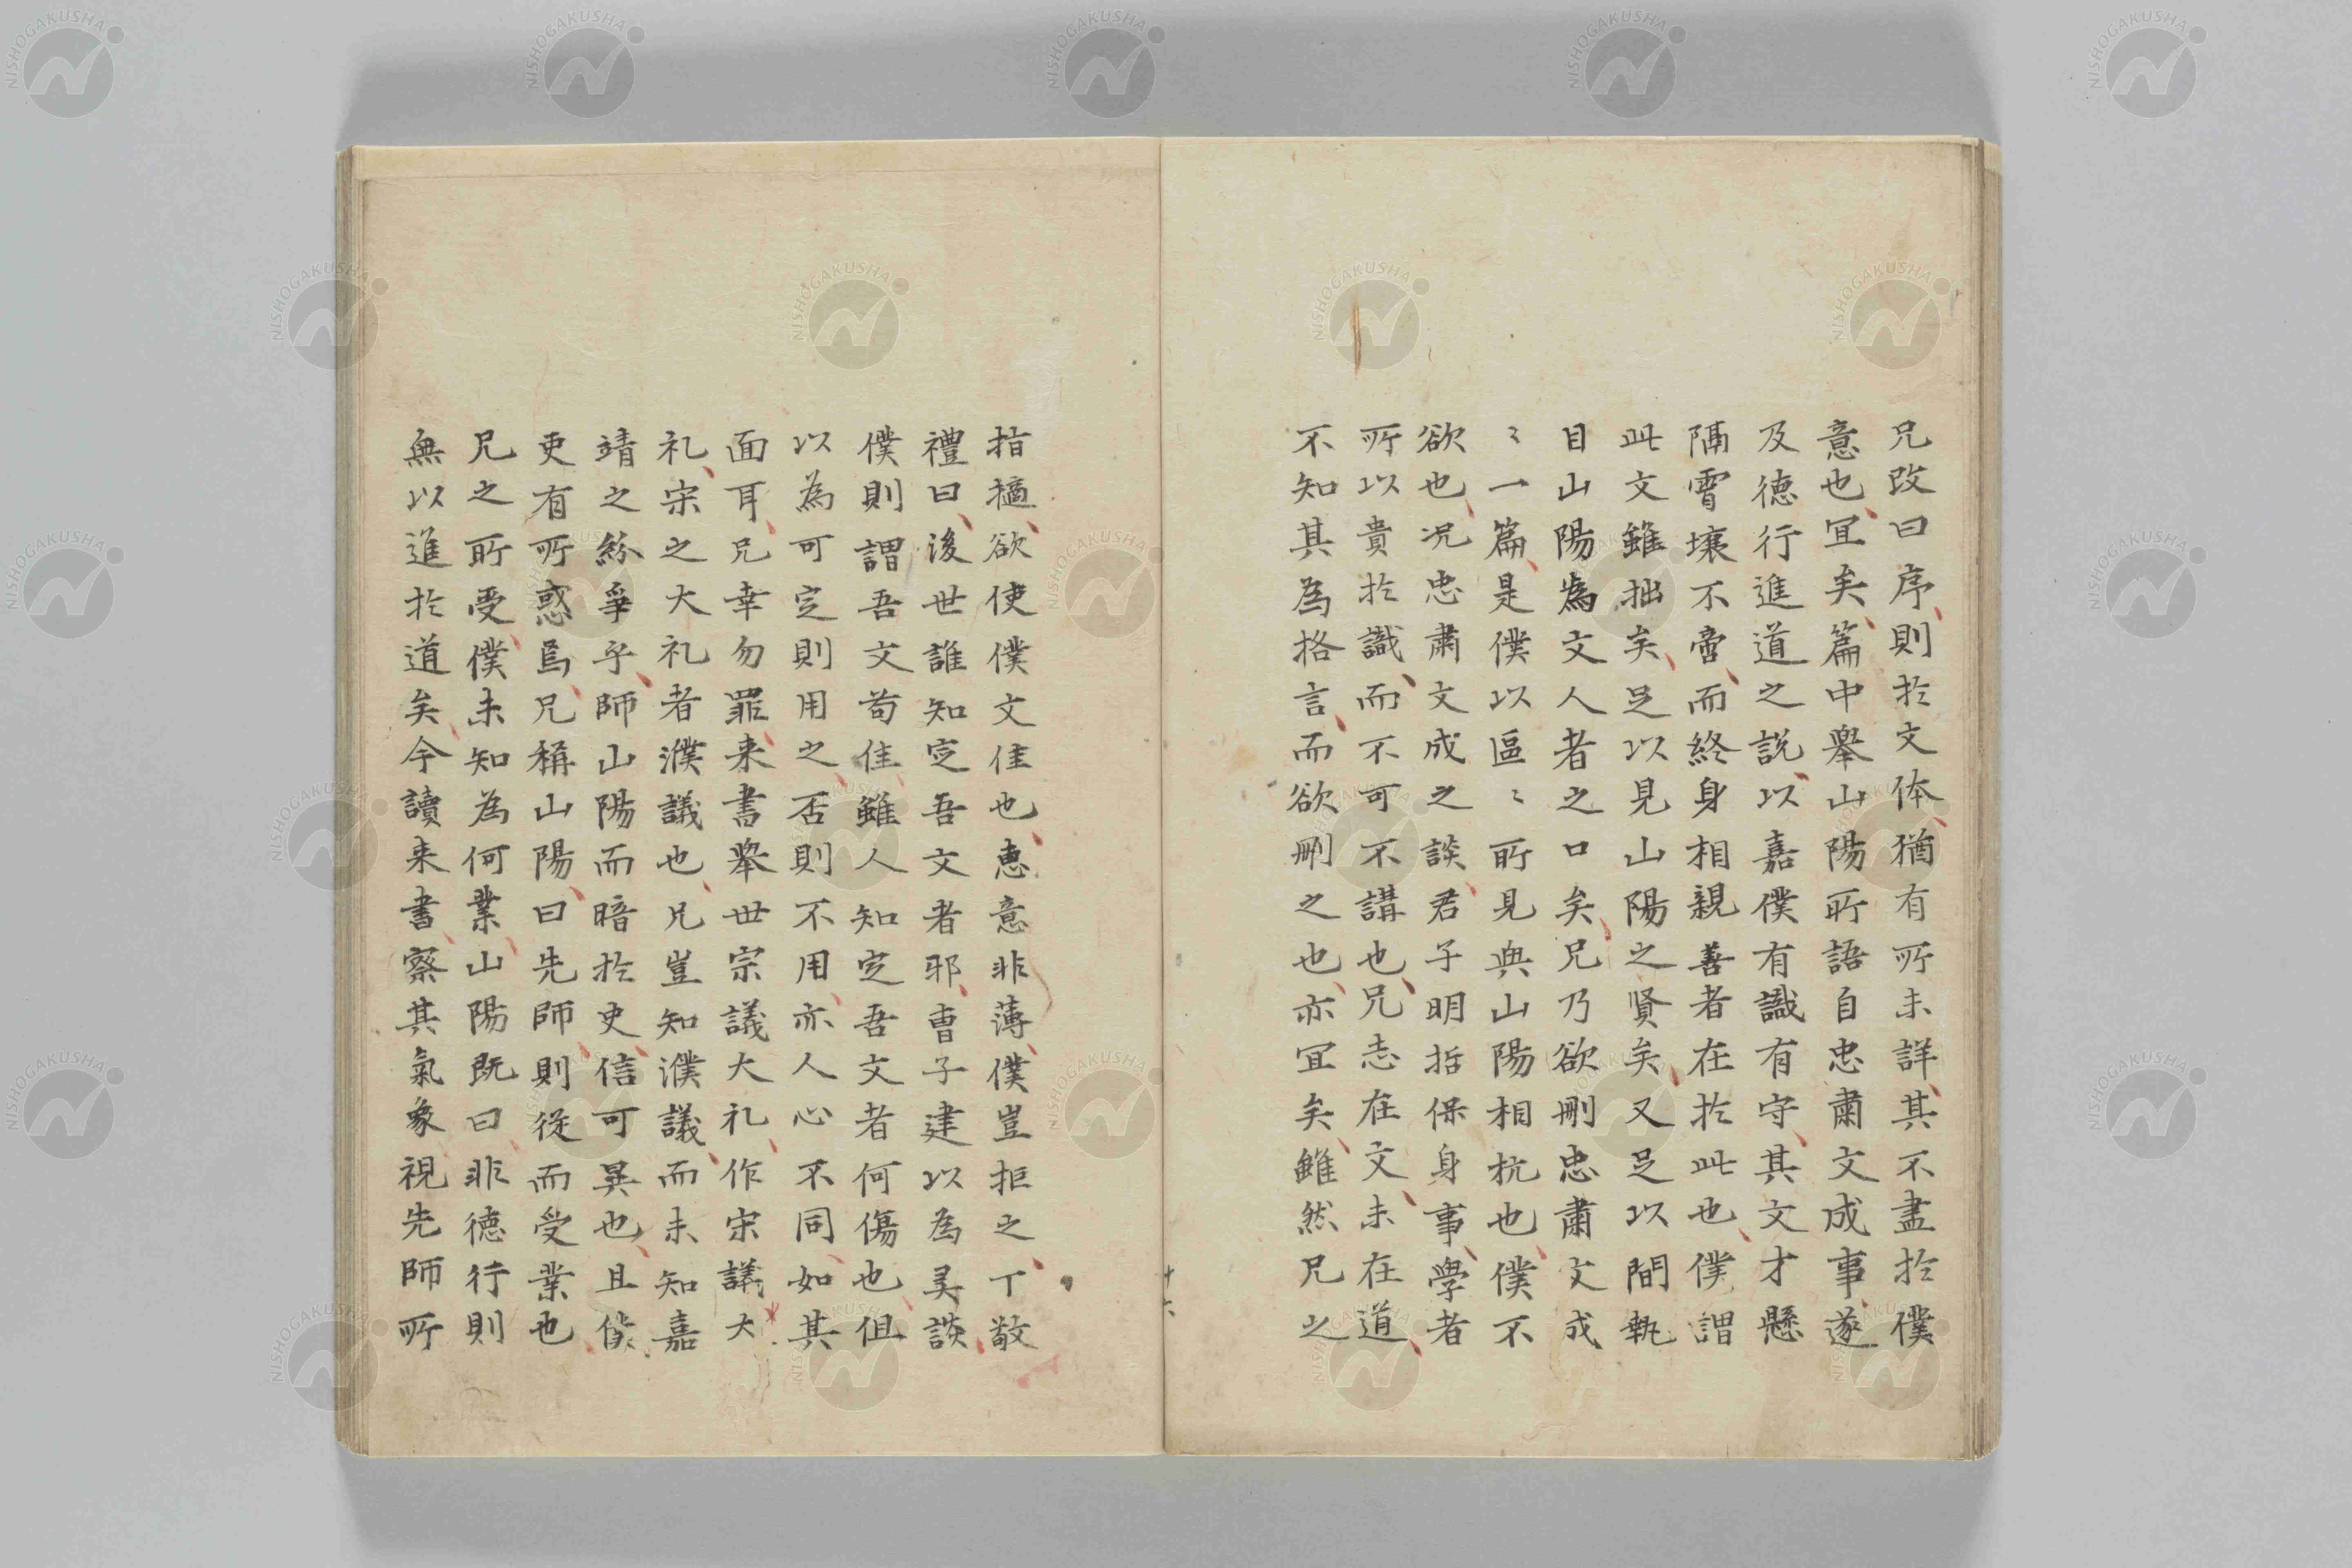 兄改曰序則於文体猶有所未詳其不盡於僕
意也冝矣篇中舉山陽所語自忠肅文成事遂
及德行進道之説以嘉僕有識有守其文才懸
隔霄壌不啻而終身相親善者在於此也僕謂
此文雖拙矣足以見山陽之賢矣又足以間執
目山陽為文人者之口矣兄乃欲刪忠肅文成
〻一篇是僕以區〻所見與山陽相抗也僕不
欲也况忠肅文成之談君子明哲保身事學者
所以貴於識而不可不講也兄志在文未在道
不知其為格言而欲刪之也亦冝矣雖然兄之
十六
指擿欲使僕文佳也惠意非薄僕豈拒之丁敬
禮曰後世誰知定吾文者耶曹子建以為美談
僕則謂吾文苟佳雖人知定吾文者何傷也但
以為可定則用之否則不用亦人心不同如其
面耳兄幸勿罪来書舉世宗議大礼作宋議大
礼宋之大礼者濮議也兄豈知濮議而未知嘉
靖之紛爭乎師山陽而暗於史信可異也且僕
更有所惑焉兄稱山陽曰先師則從而受業也
兄之所受僕未知為何業山陽既曰非德行則
無以進於道矣今讀来書察其氣象視先師所
NISHOGAKUSHA